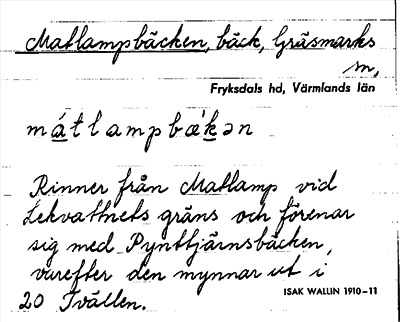 Matlampbäcken, bäck, Gräsmarks
sn,
Fryksdals hd, Värmlands län
mátlampbǽkən
Rinner från Matlamp vid
Lekvattnets gräns och förenar
sig med Pynttjärnsbäcken,
varefter den mynnar ut i
20 Tvällen.
ISAK WALLIN 1910–11